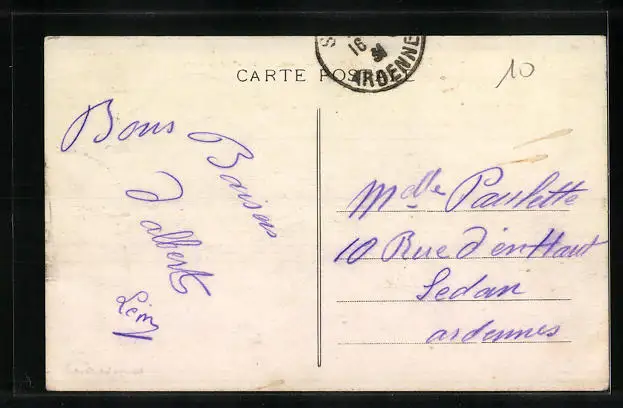 CARTE POSTALE
16
ARDENNE
10
Bons Baisers
d'albert
Mdlle Paulette
10 Rue d'en Haut
Sedan
ardennes